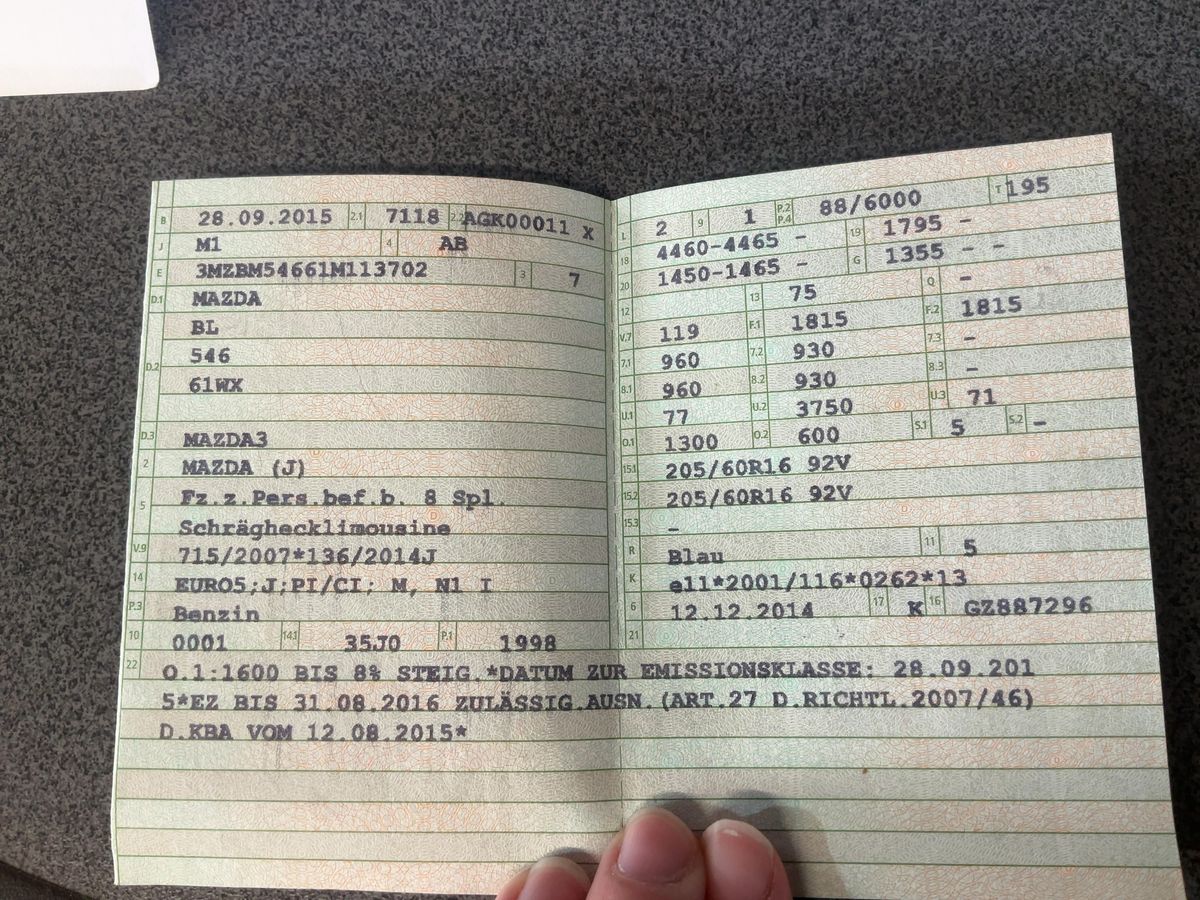 B 28.09.2015 2.1 7118 2.2 AGK00011 X
J M1 4 AB
E 3MZBM54661M113702 3 7
D.1 MAZDA
BL
D.2 546
61WX
D.3 MAZDA3
2 MAZDA (J)
5 Fz.z.Pers.bef.b. 8 Spl.
Schräghecklimousine
V.9 715/2007*136/2014J
14 EURO5;J;PI/CI; M, N1 I
P.3 Benzin
10 0001 14.1 35J0 P.1 1998
L 2 9 1 P.2 P.4 88/6000 T 195
18 4460-4465 - 19 1795 -
20 1450-1465 - G 1355 - -
12 13 75 Q -
V.7 119 F.1 1815 F.2 1815
7.1 960 7.2 930 7.3 -
8.1 960 8.2 930 8.3 -
U.1 77 U.2 3750 U.3 71
O.1 1300 O.2 600 S.1 5 S.2 -
15.1 205/60R16 92V
15.2 205/60R16 92V
15.3 -
R Blau 11 5
K e11*2001/116*0262*13
6 12.12.2014 17 K 16 GZ887296
21
22 O.1:1600 BIS 8% STEIG.*DATUM ZUR EMISSIONSKLASSE: 28.09.201
5*EZ BIS 31.08.2016 ZULÄSSIG.AUSN.(ART.27 D.RICHTL.2007/46)
D.KBA VOM 12.08.2015*